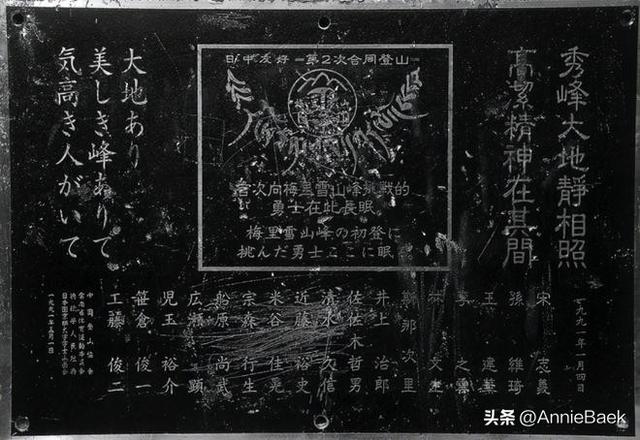 秀峰大地靜相照
高絜精神在其間
日中友好ー第2次合同登山
首次向梅里雪山峰挑戦的
勇士在此長眠
梅里雪山峰の初登に
挑んだ勇士ここに眠
大地あり
美しき峰ありて
気高き人がいて
一九九一年一月四日
宋 志義
孫 維琦
王 建華
李 之雲
林 文生
斯那次里
井上 治郎
佐佐木 哲男
清水 久信
近藤 裕史
米谷 佳晃
宗森 行生
船原 尚武
広瀬 顕
児玉 裕介
笹倉 俊一
工藤 俊二
中国登山協会
雲南省体育運動委員会
日本国京都大学学士山岳会
一九九一年五月一日
头条 @AnnieBaek